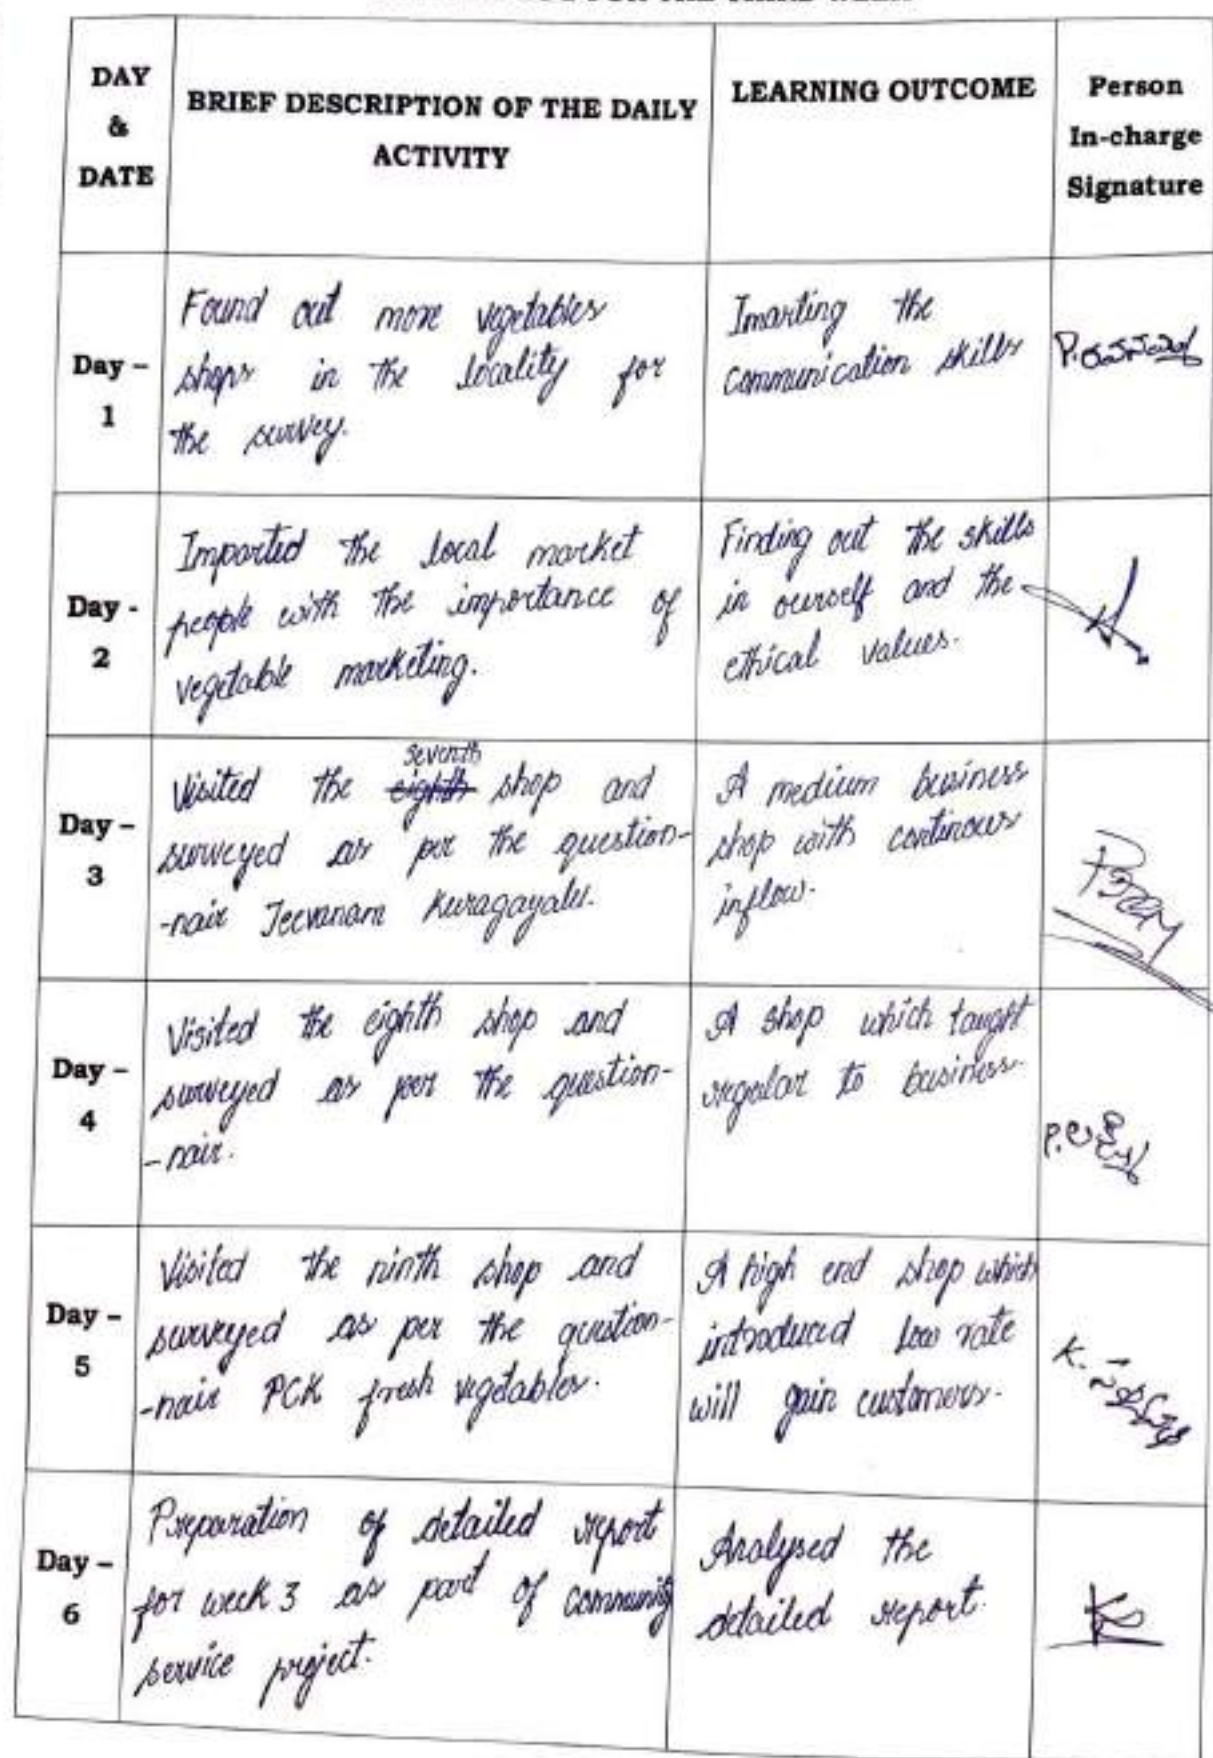 FOR THE THIRD WEEK
DAY
&
DATE
BRIEF DESCRIPTION OF THE DAILY
ACTIVITY
LEARNING OUTCOME
Person
In-charge
Signature
Day –
1
Found out more vegetables
shops in the locality for
the survey.
Imarting the
communication skills
Day -
2
Imparted the local market
people with the importance of
vegetable marketing.
Finding out the skills
in ourself and the
ethical values.
Day –
3
seventh
Visited the eighth shop and
surveyed as per the question-
-nair Jeevanam Kuragayalu.
A medium business
shop with continous
inflow.
Day –
4
Visited the eighth shop and
surveyed as per the question-
-nair.
A shop which taught
regular to business.
Day –
5
Visited the ninth shop and
surveyed as per the question-
-nair PCK fresh vegetables.
A high end shop which
introduced low rate
will gain customers.
Day –
6
Preparation of detailed report
for week 3 as part of community
service project.
Analysed the
detailed report.